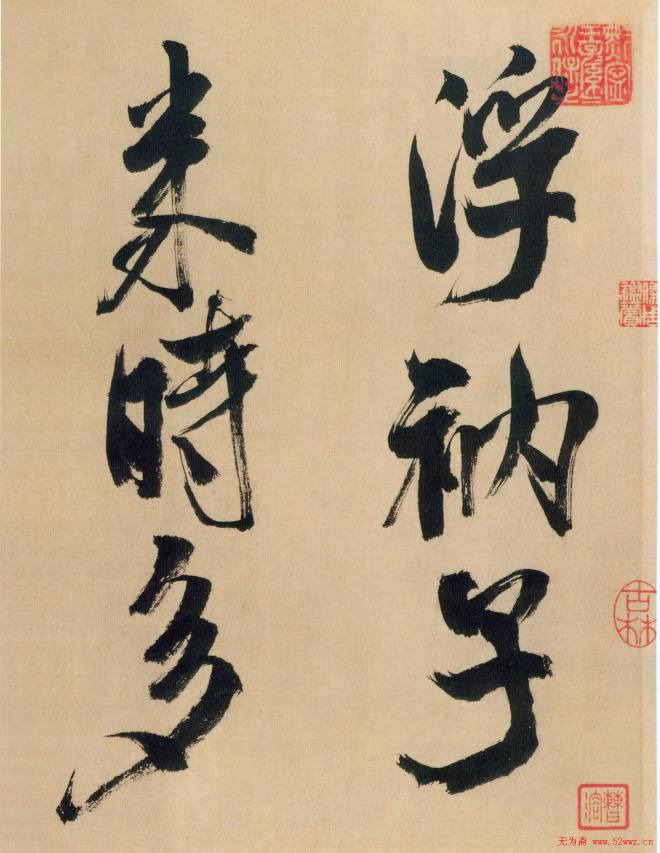 浮衲子
来時多
古林
曹溶
无为斋 www.52wwz.cn